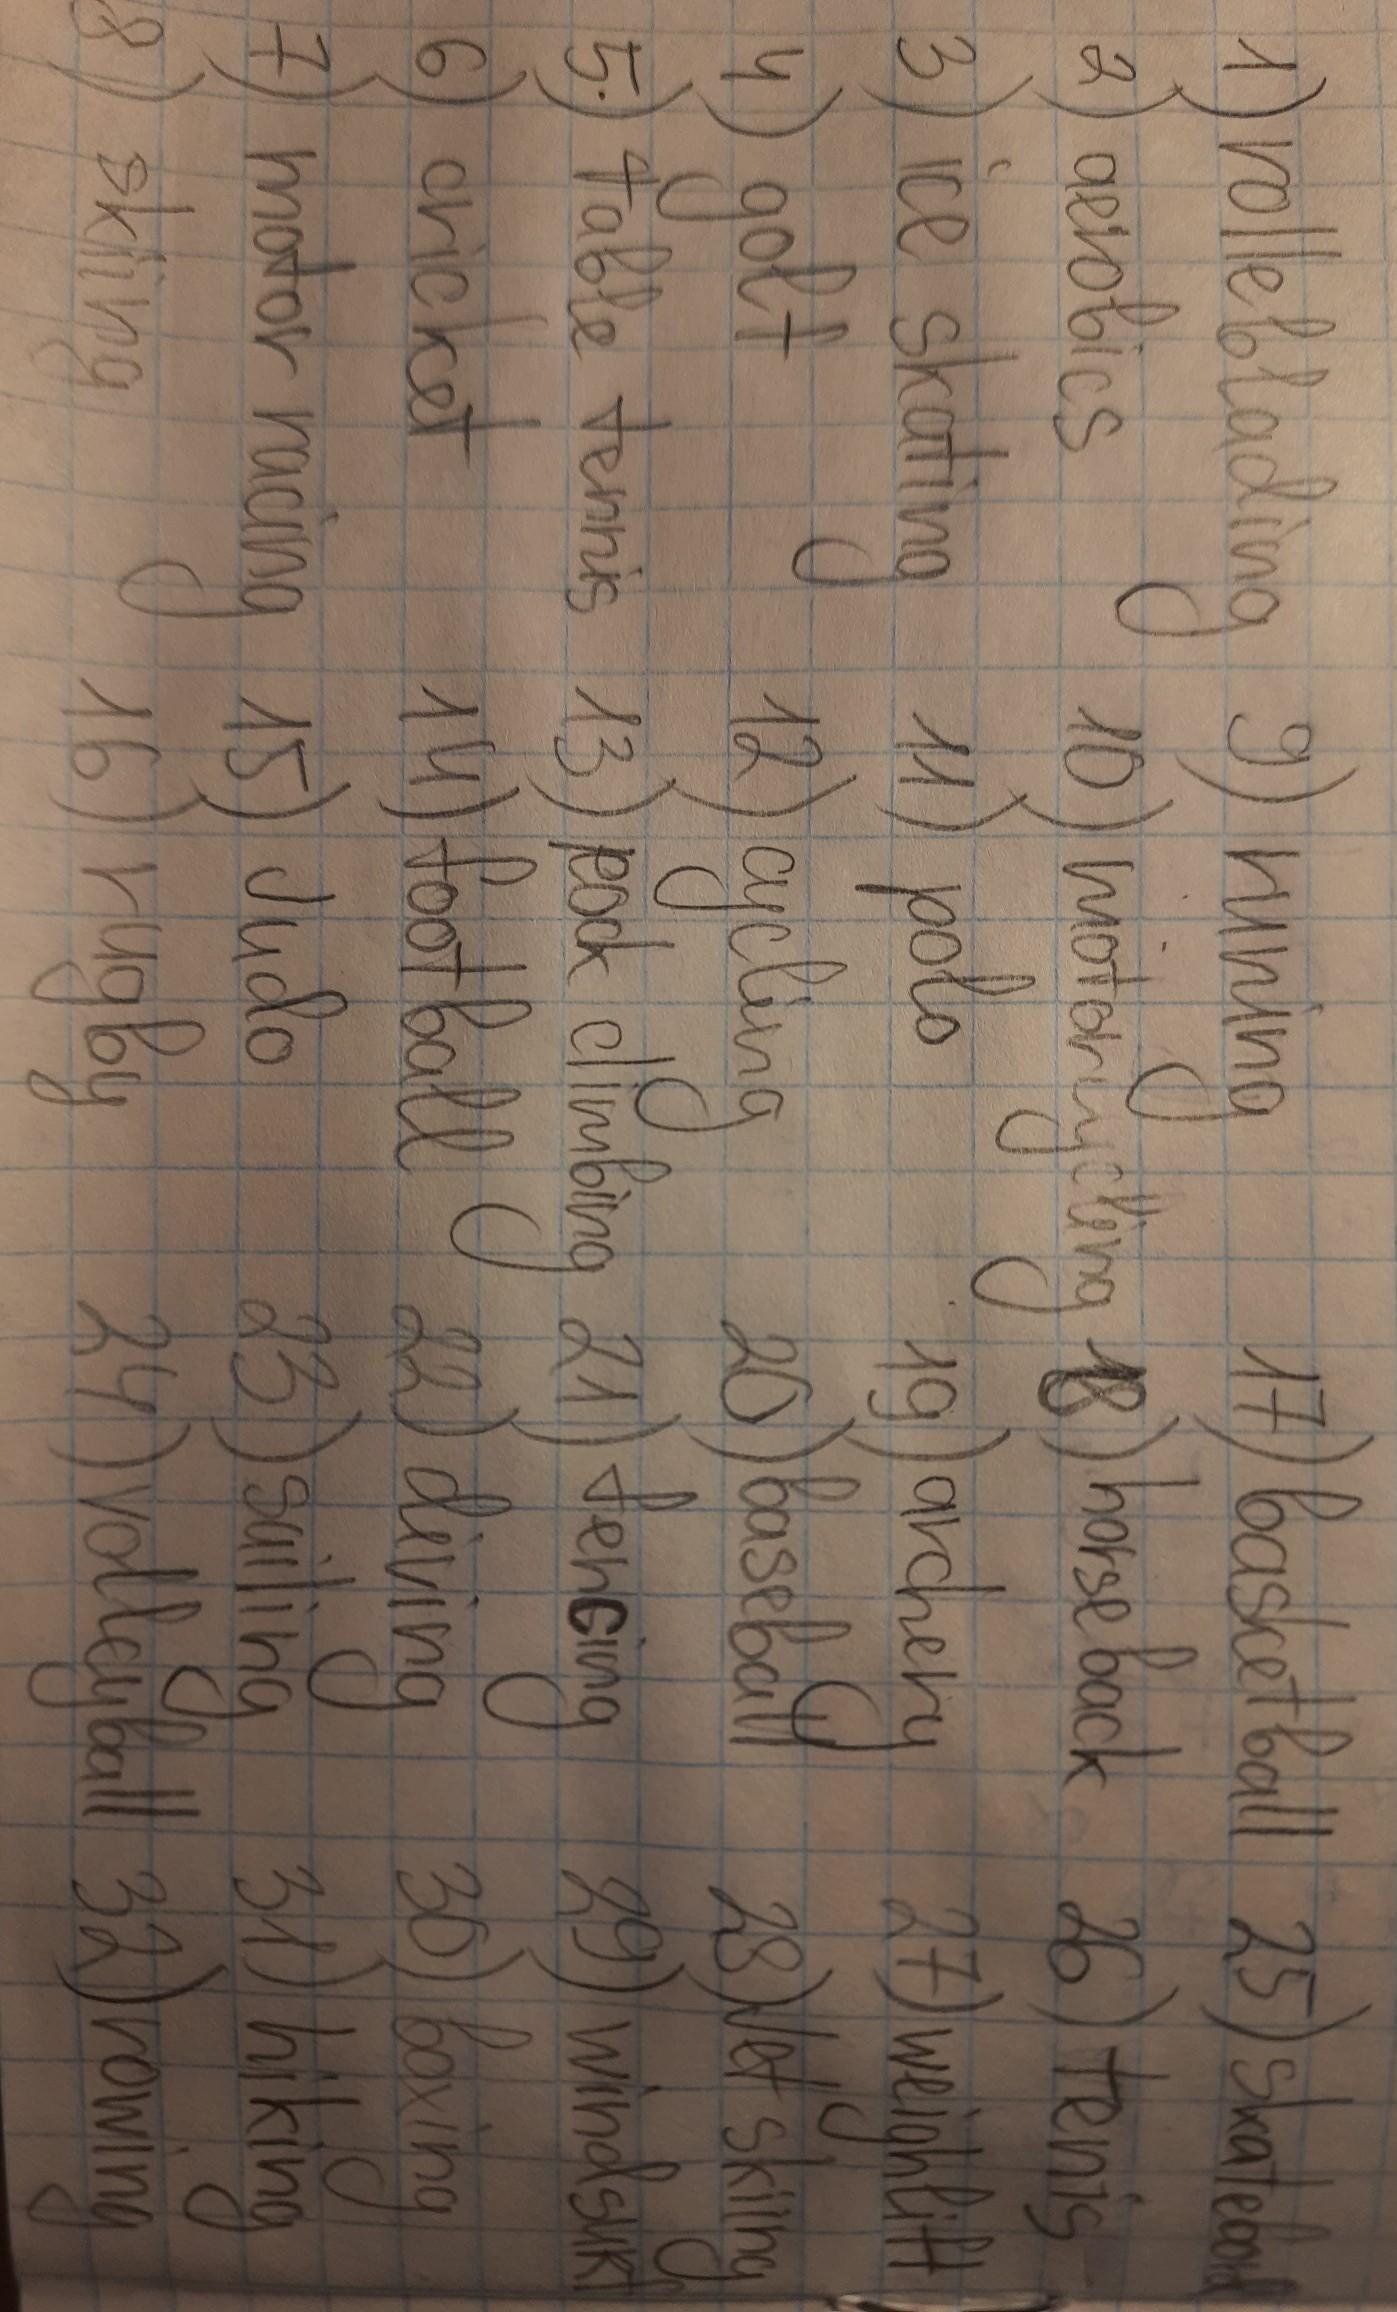 1) rolleblading 9) runing 17) basketball 25) skateboard
2) aerobics 10) motorcycling 18) horseback 26) tenis
3) ice skating 11) polo 19) archery 27) weighlift
4) golf 12) cycling 20) baseball 28) Jet skiing
5) table tennis 13) rock climbing 21) fencing 29) windsurf
6) cricket 14) football 22) diving 30) boxing
7) motor racing 15) Judo 23) sailing 31) hiking
8) skiing 16) rugby 24) volleyball 32) rowing